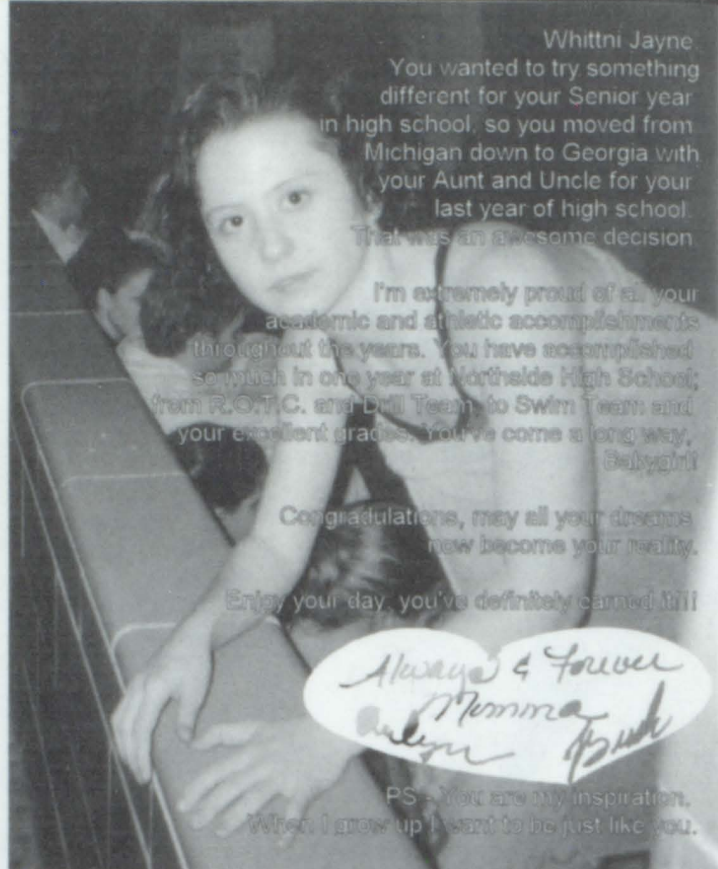 Whittni Jayne
You wanted to try something
different for your Senior year
in high school, so you moved from
Michigan down to Georgia with
your Aunt and Uncle for your
last year of high school.
That was an awesome decision.
I'm extremely proud of all your
academic and athletic accomplishments
throughout the years. You have accomplished
so much in one year at Northside High School;
from R.O.T.C. and Drill Team, to Swim Team and
your excellent grades. You've come a long way,
Babygirl!
Congradulations, may all your dreams
now become your reality.
Enjoy your day, you've definitely earned it!!!
Always & Forever
Momma
PS - You are my inspiration.
When I grow up I want to be just like you.